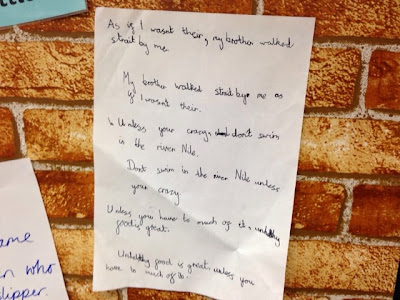 As if I wasnt their, my brother walked
strait by me.
My brother walked strait by me as
if I wasnt their.
Unless your crazy, dont swim
in the river Nile.
Dont swim in the river Nile unless
your crazy
Unless you have to much of it, unhealthy
food is great.
Unhealthy food is great, unless you
have to much of it.
ame
n who
lipper.